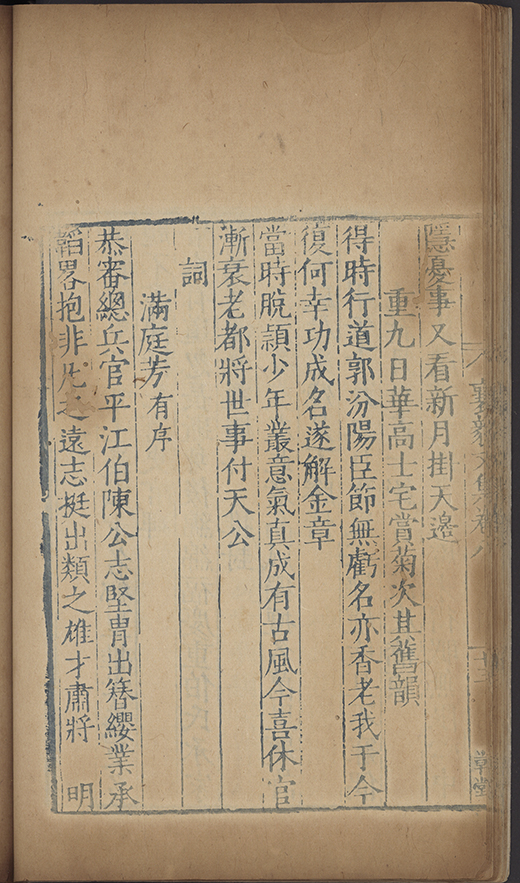 隱憂事又看新月掛天邊
重九日華高士宅賞菊次其舊韻
得時行道郭汾陽臣節無虧名亦香老我于今
復何幸功成名遂解金章
當時脫穎少年叢意氣真成有古風今喜休官
漸衰老都將世事付天公
詞
滿庭芳有序
恭審總兵官平江伯陳公志堅胄出簪纓業承
韜畧抱非凡之遠志挺出類之雄才肅將 明